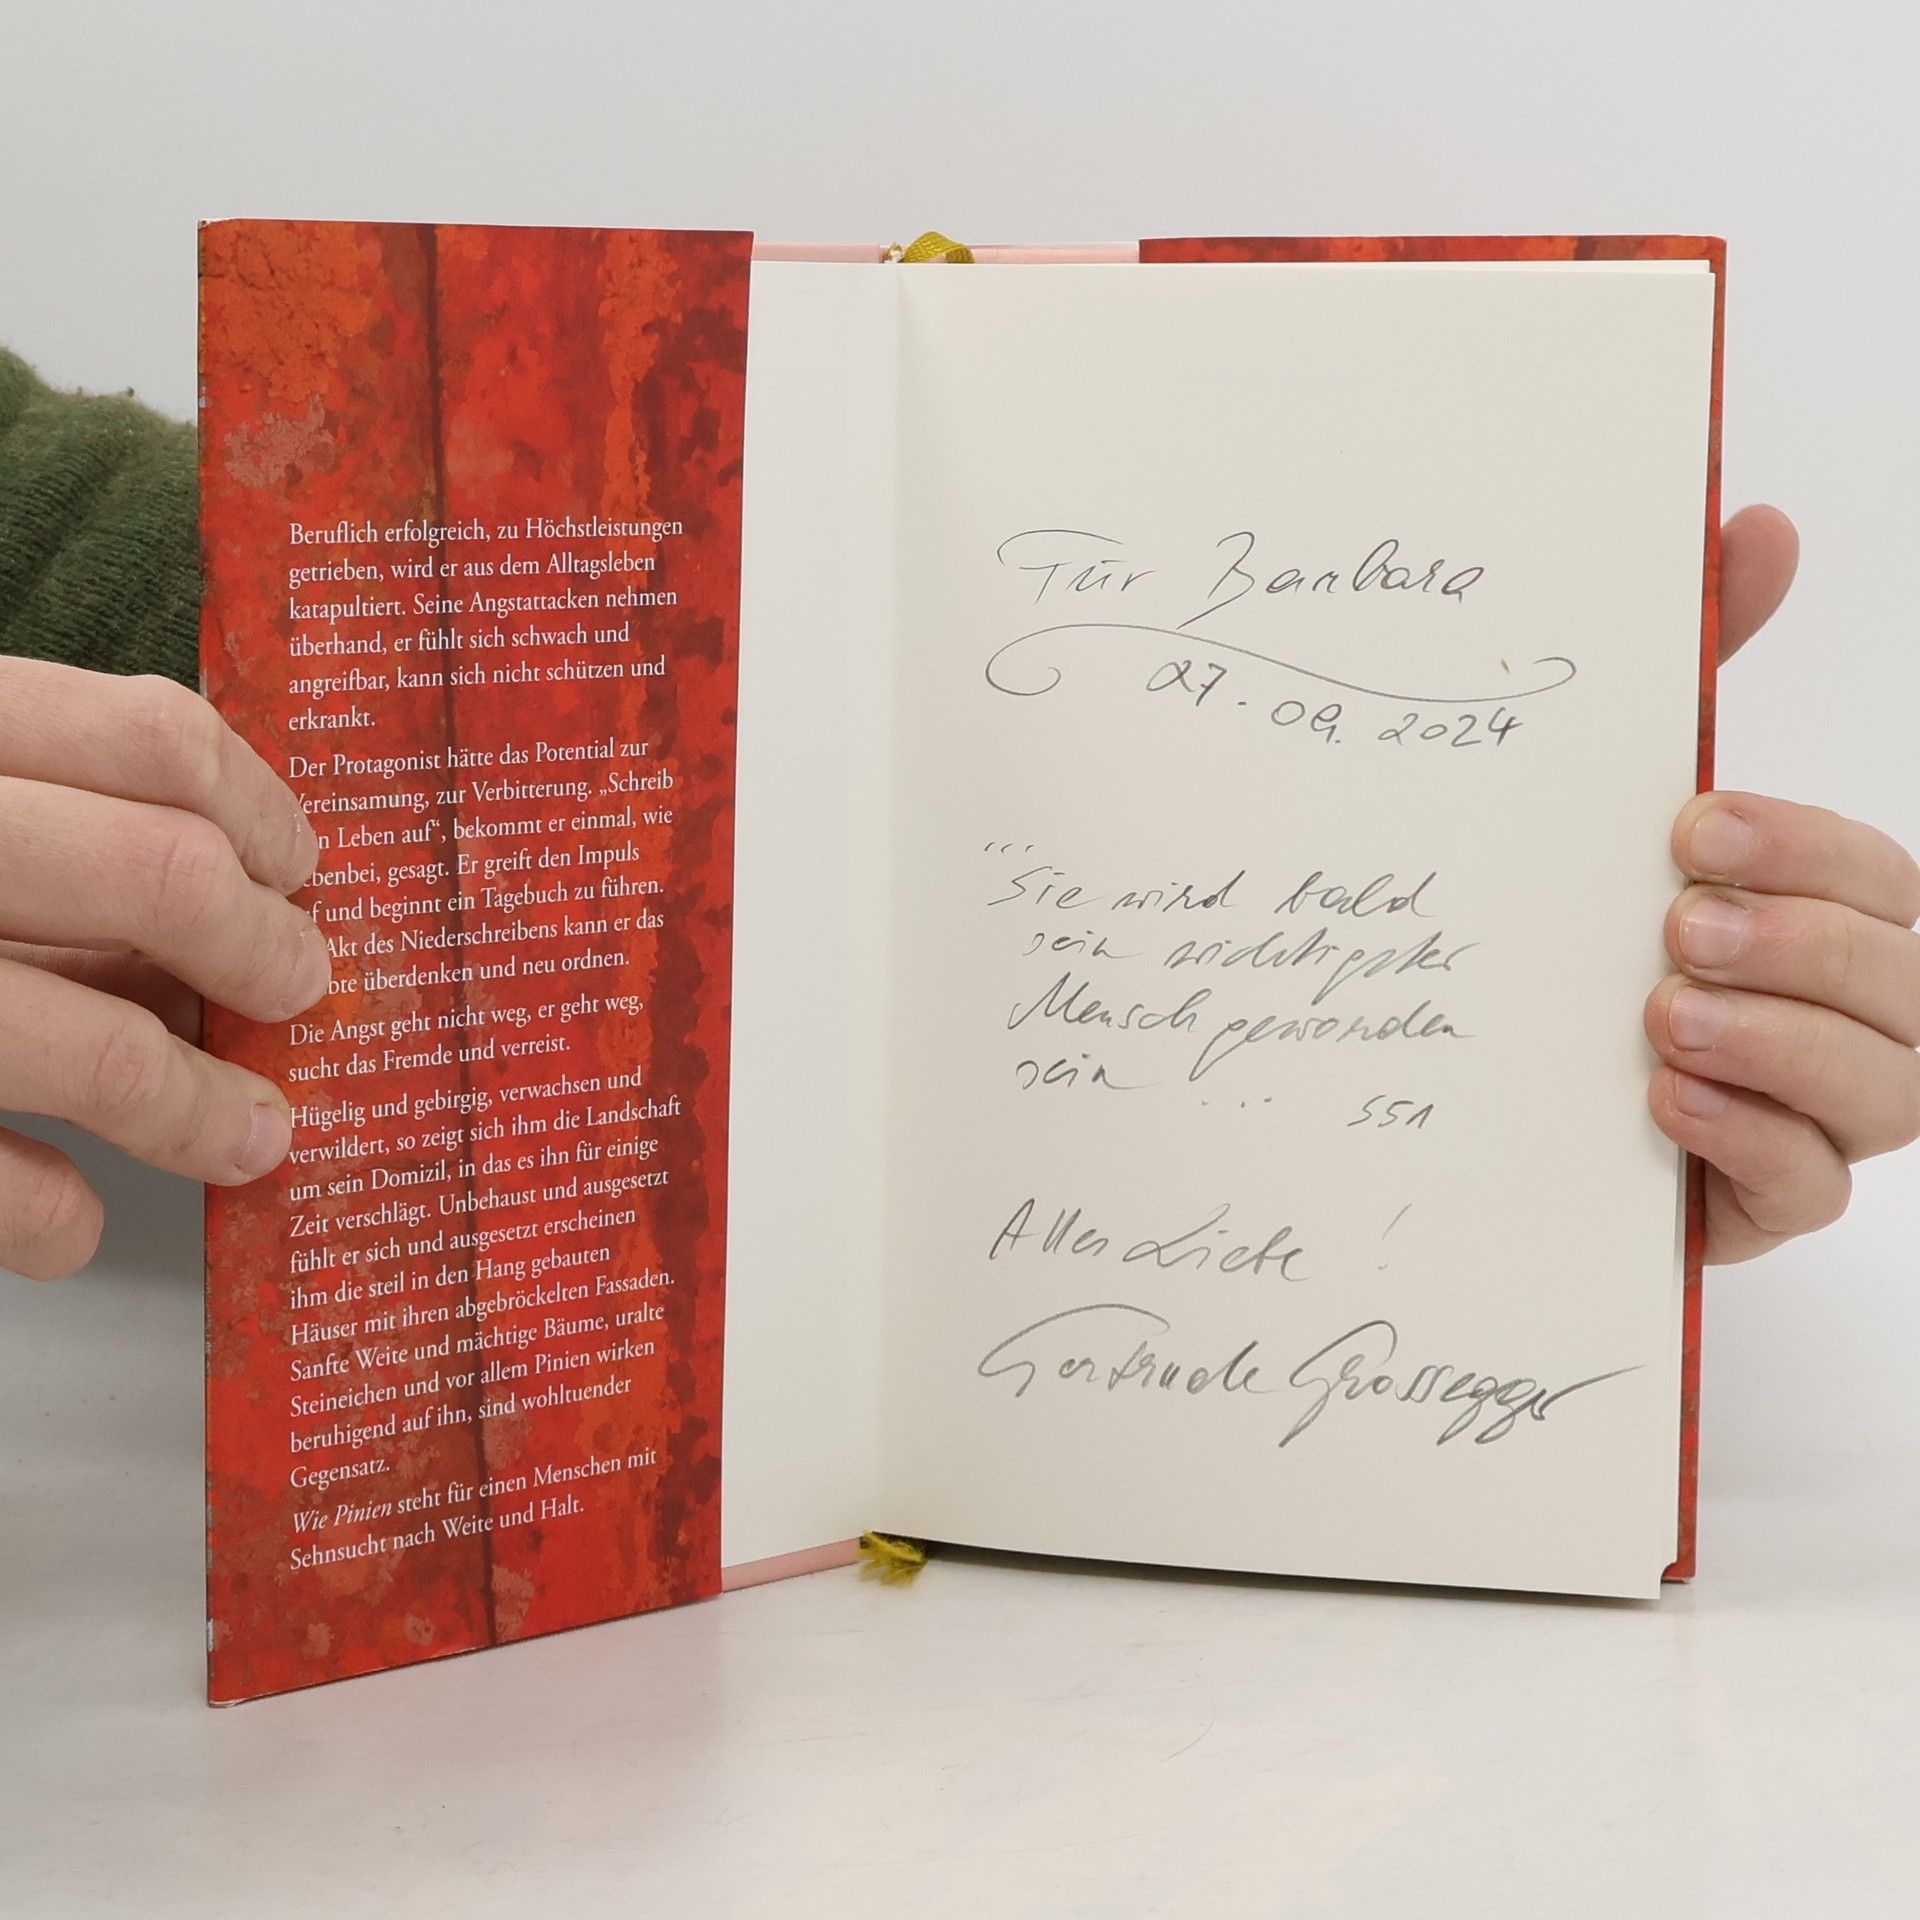 Beruflich erfolgreich, zu Höchstleistungen
getrieben, wird er aus dem Alltagsleben
katapultiert. Seine Angstattacken nehmen
überhand, er fühlt sich schwach und
angreifbar, kann sich nicht schützen und
erkrankt.
Der Protagonist hätte das Potential zur
Vereinsamung, zur Verbitterung. „Schreib
Leben auf“, bekommt er einmal, wie
gesagt. Er greift den Impuls
und beginnt ein Tagebuch zu führen.
Akt des Niederschreibens kann er das
überdenken und neu ordnen.
Die Angst geht nicht weg, er geht weg,
sucht das Fremde und verreist.
Hügelig und gebirgig, verwachsen und
verwildert, so zeigt sich ihm die Landschaft
um sein Domizil, in das es ihn für einige
Zeit verschlägt. Unbehaust und ausgesetzt
fühlt er sich und ausgesetzt erscheinen
ihm die steil in den Hang gebauten
Häuser mit ihren abgebröckelten Fassaden.
Sanfte Weite und mächtige Bäume, uralte
Steineichen und vor allem Pinien wirken
beruhigend auf ihn, sind wohltuender
Gegensatz.
Wie Pinien steht für einen Menschen mit
Sehnsucht nach Weite und Halt.
Für Barbara
27.09.2024
...
Sie wird bald
sein wichtigster
Mensch geworden
sein ... S51
Alles Liebe!
Gertrude Grossegger